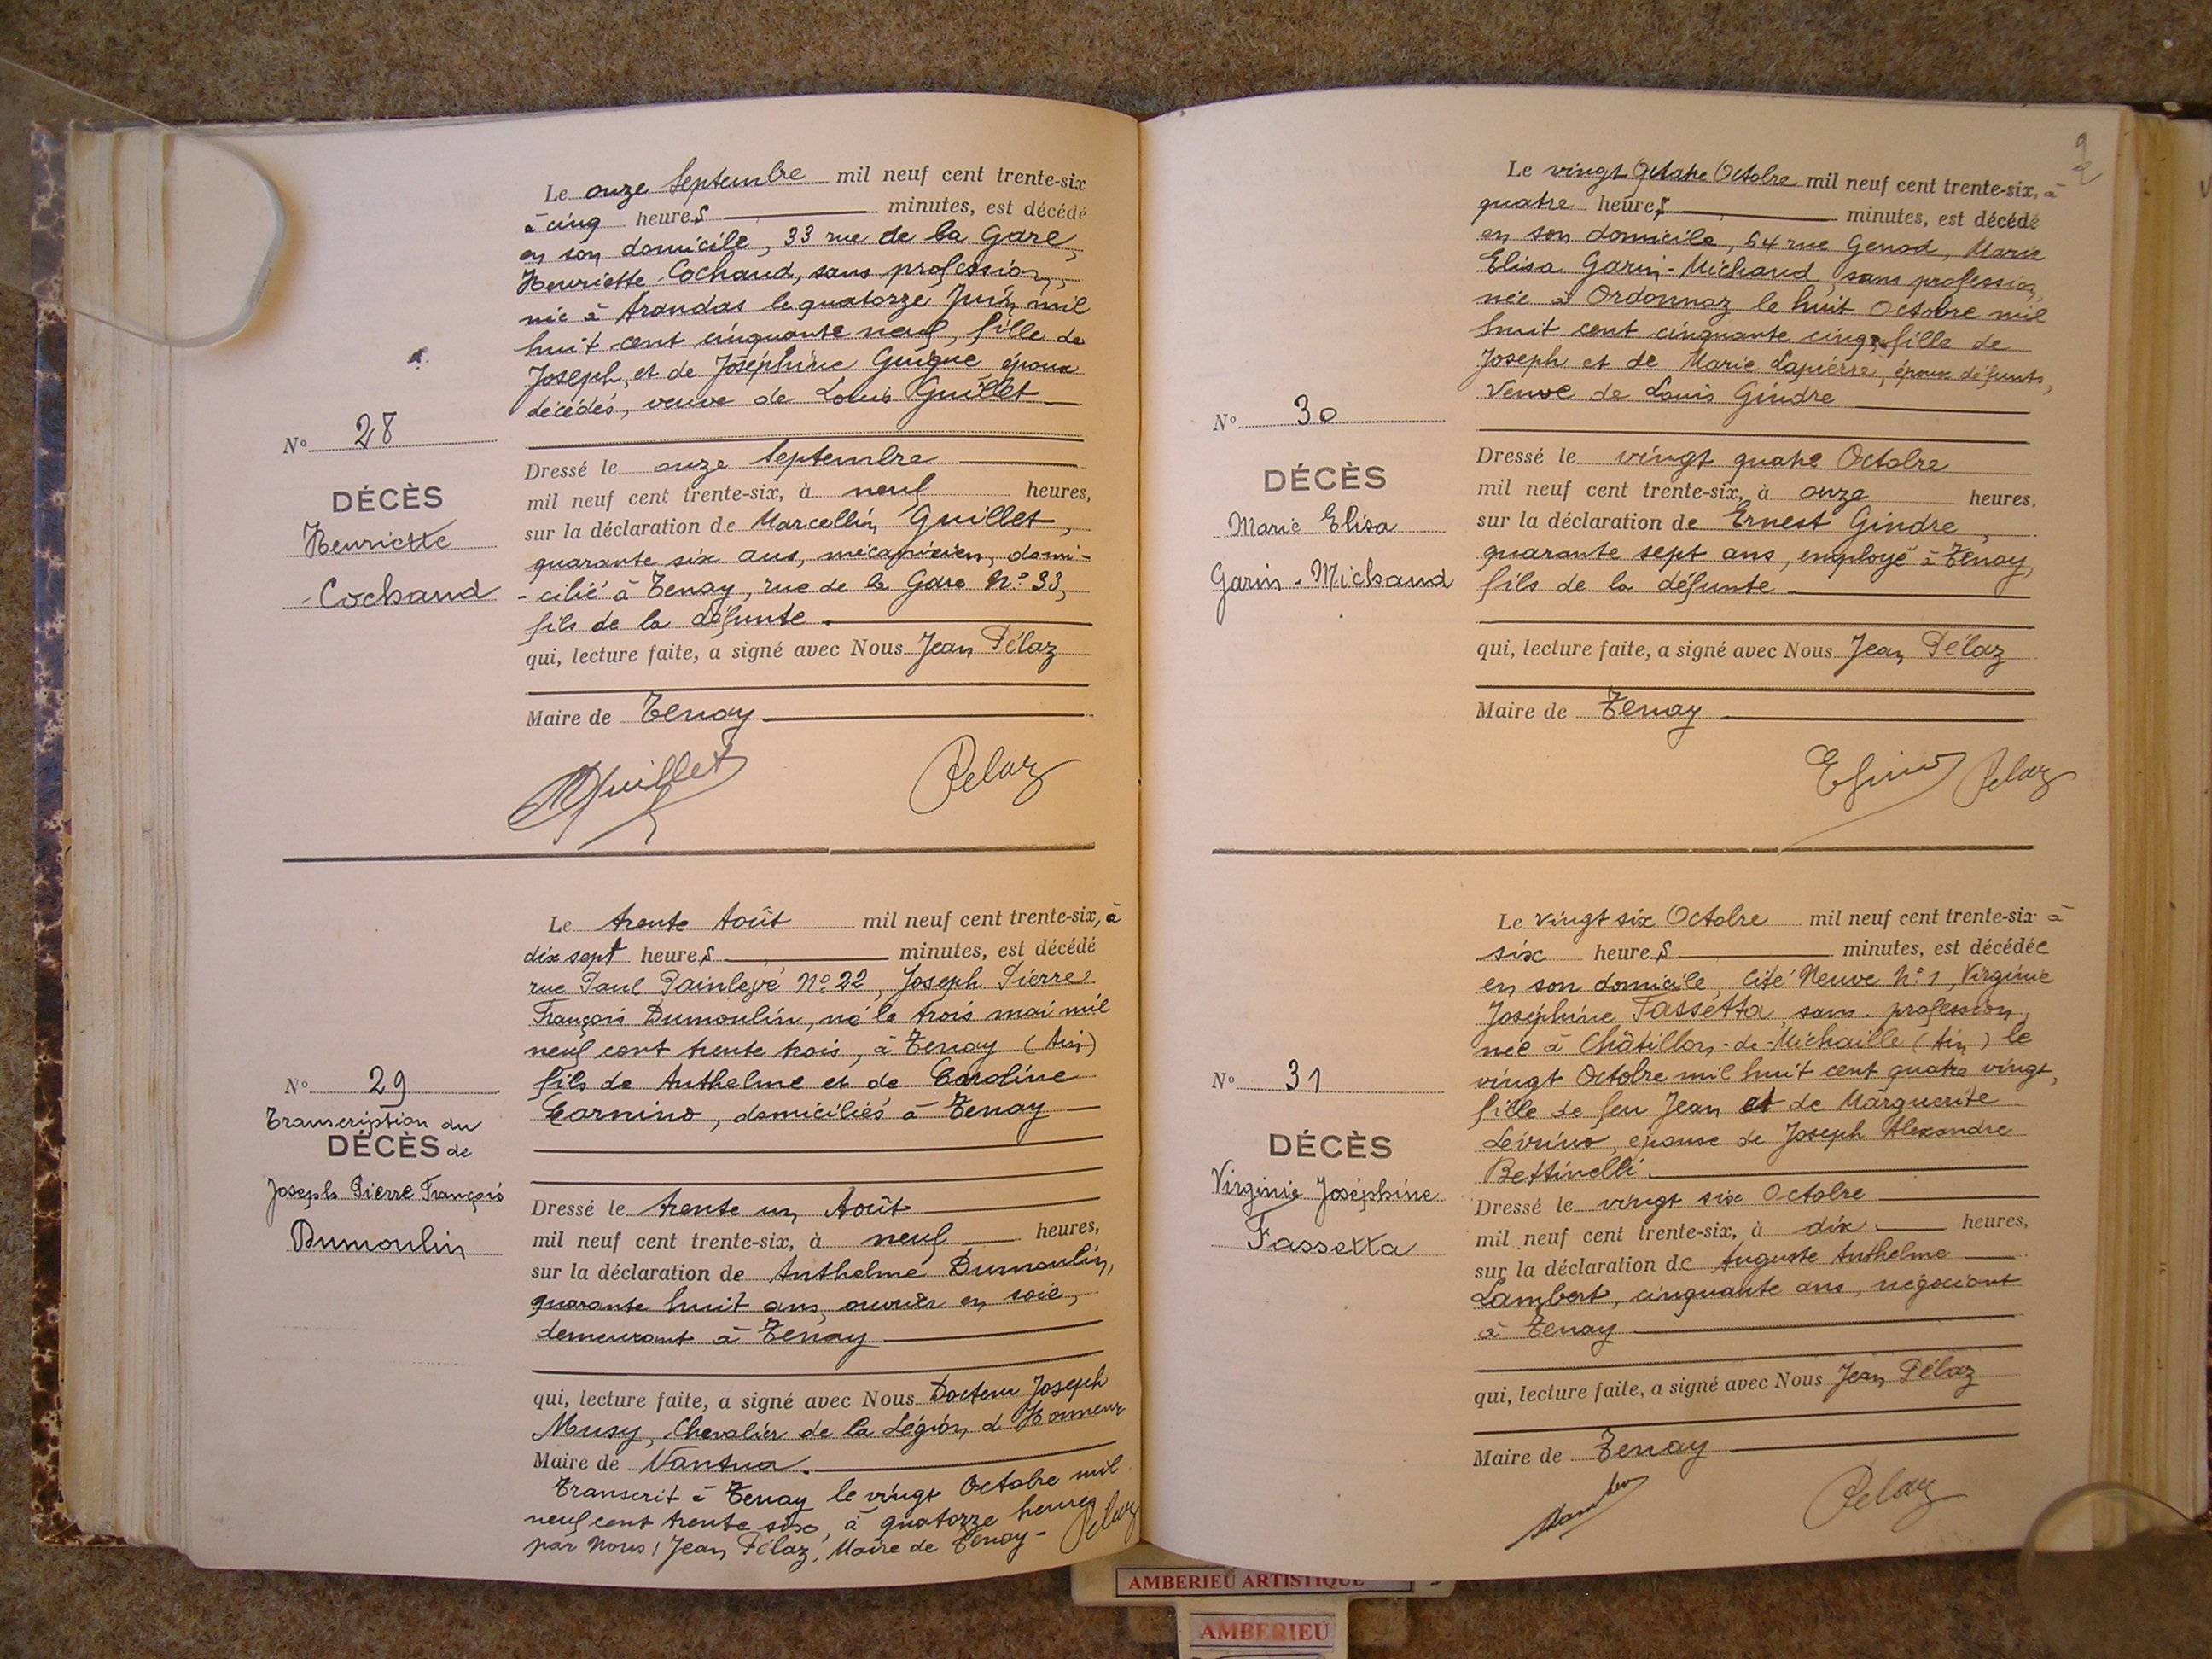 Le onze Septembre mil neuf cent trente-six
à cinq heures minutes, est décédé
en son domicile, 33 rue de la Gare,
Henriette Cochand, sans profession,
née à Arandas le quatorze Juin mil
huit cent cinquante neuf, fille de
Joseph, et de Joséphine Guigue, époux
décédés, veuve de Louis Guillet
N° 28
DÉCÈS
Henriette
Cochand
Dressé le onze Septembre
mil neuf cent trente-six, à neuf heures,
sur la déclaration de Marcellin Guillet,
quarante six ans, mécanicien, domi-
-cilié à Tenay, rue de la Gare N° 33,
fils de la défunte
qui, lecture faite, a signé avec Nous Jean Pélaz
Maire de Tenay
MGuillet Pelaz
Le trente Août mil neuf cent trente-six, à
dix sept heures minutes, est décédé
rue Paul Painlevé N° 22, Joseph Pierre
François Dumoulin, né le trois mai mil
neuf cent trente trois, à Tenay (Ain)
fils de Anthelme et de Caroline
Carnino, domiciliés à Tenay
N° 29
Transcription du
DÉCÈS de
Joseph Pierre François
Dumoulin
Dressé le trente un Août
mil neuf cent trente-six, à neuf heures,
sur la déclaration de Anthelme Dumoulin,
quarante huit ans, ouvrier en soie,
demeurant à Tenay
qui, lecture faite, a signé avec Nous Docteur Joseph
Musy, Chevalier de la Légion d'Honneur
Maire de Nantua.
Transcrit à Tenay le vingt Octobre mil
neuf cent trente six, à quatorze heures
par Nous, Jean Pélaz, Maire de Tenay - Pelaz
Le vingt quatre Octobre mil neuf cent trente-six, à
quatre heures minutes, est décédé
en son domicile, 64 rue Genod, Marie
Elisa Garin-Michaud, sans profession,
née à Ordonnaz le huit Octobre mil
huit cent cinquante cinq, fille de
Joseph et de Marie Lapierre, époux défunts,
Veuve de Louis Gindre
N° 30
DÉCÈS
Marie Elisa
Garin-Michaud
Dressé le vingt quatre Octobre
mil neuf cent trente-six, à onze heures.
sur la déclaration de Ernest Gindre,
quarante sept ans, employé à Tenay,
fils de la défunte
qui, lecture faite, a signé avec Nous Jean Pélaz
Maire de Tenay
Pelaz
Le vingt six Octobre mil neuf cent trente-six à
six heures minutes, est décédée
en son domicile, Cité Neuve N° 1, Virginie
Joséphine Fassetta, sans profession,
née à Châtillon-de-Michaille (Ain) le
vingt Octobre mil huit cent quatre vingt,
fille de feu Jean et de Marguerite
Lévrino, épouse de Joseph Alexandre
Bettinelli.
N° 31
DÉCÈS
Virginie Joséphine
Fassetta
Dressé le vingt six Octobre
mil neuf cent trente-six, à dix heures,
sur la déclaration de Auguste Anthelme
Lambert, cinquante ans, négociant
à Tenay
qui, lecture faite, a signé avec Nous Jean Pélaz
Maire de Tenay
Pelaz
AMBERIEU ARTISTIQUE
AMBERIEU